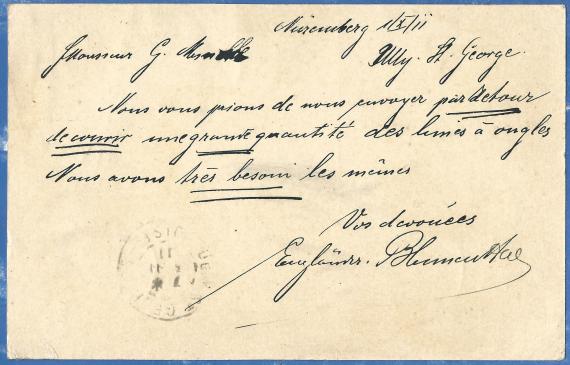 Nuremberg 1/X/11
Monsieur G.
Ully. St. George.
Nous vous prions de nous envoyer par retour
de courrir une grande quantité des limes à ongles
Nous avons très besoin les mêmes
Vos devouées
Engländer. Blumenthal